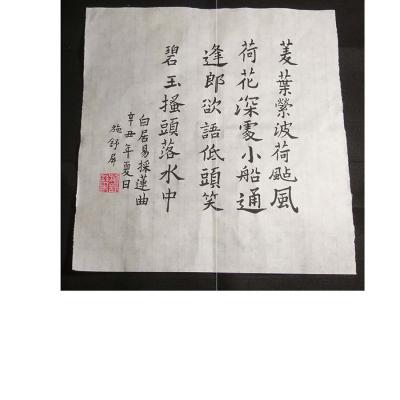 菱葉縈波荷颭風
荷花深處小船通
逢郎欲語低頭笑
碧玉搔頭落水中
白居易採蓮曲
辛丑年夏日
施舒屏